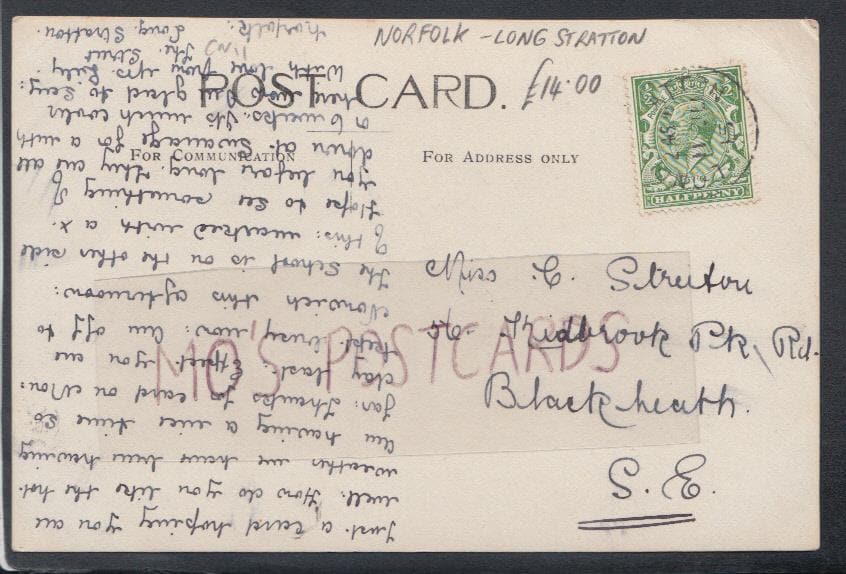 NORFOLK - LONG STRATTON
£14.00
POST CARD.
FOR COMMUNICATION
FOR ADDRESS ONLY
HALFPENNY
Miss Streeton
Kidbrook Pk. Rd.
Blackheath.
S.E.
MO'S POSTCARDS
Just. a card hoping you are
well. How do you like the hot.
weather we have been having
am having a nice time so
far: Thanks for card on Mon:
day last. Expect you are
kept busy now: am off to
Norwich this afternoon:
The School is on the other side
of this: marked with a x.
Hope to see something of
you before long. They are all
down at Swanage for a mth
or 6 weeks: Its much cooler
here now am glad to say:
With love from yrs Lily
The Street
Long. Stratton.
Norfolk.